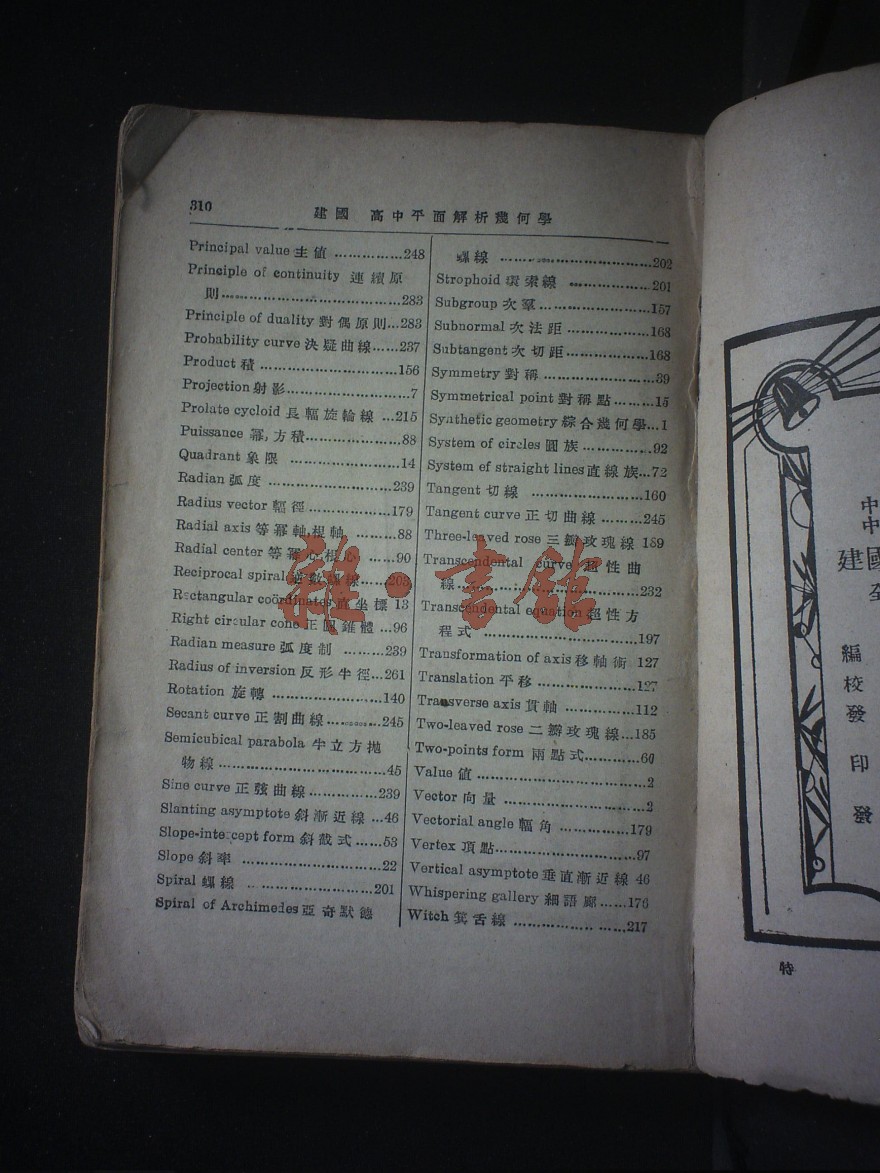 310
建國 高中平面解析幾何學
Principal value 主值 ...............248
Principle of continuity 連續原
則........................................283
Principle of duality 對偶原則...283
Probability curve 決疑曲線......237
Product 積 ..............................156
Projection 射影............................7
Prolate cycloid 長輻旋輪線 ...215
Puissance 冪, 方積.....................88
Quadrant 象限 ........................14
Radian 弧度 ...........................239
Radius vector 輻徑..................179
Radial axis 等冪軸,根軸 .........88
Radial center 等冪心,根心 ......90
Reciprocal spiral 逆數螺線......203
Rectangular coördinates 直坐標 13
Right circular cone 正圓錐體 ...96
Radian measure 弧度制 .........239
Radius of inversion 反形半徑...261
Rotation 旋轉 ........................140
Secant curve 正割曲線............245
Semicubical parabola 半立方拋
物線....................................45
Sine curve 正弦曲線...............239
Slanting asymptote 斜漸近線 ...46
Slope-intercept form 斜截式......53
Slope 斜率 ..............................22
Spiral 螺線 ...........................201
Spiral of Archimedes 亞奇默德
螺線 .................................202
Strophoid 環索線 ..................201
Subgroup 次羣........................157
Subnormal 次法距..................168
Subtangent 次切距..................168
Symmetry 對稱 ........................39
Symmetrical point 對稱點.........15
Synthetic geometry 綜合幾何學...1
System of circles 圓族...............92
System of straight lines 直線族...72
Tangent 切線 ........................160
Tangent curve 正切曲線 .........245
Three-leaved rose 三瓣玫瑰線 189
Transcendental curve 超性曲
線....................................232
Transcendental equation 超性方
程式 .................................197
Transformation of axis 移軸術 127
Translation 平移.....................127
Transverse axis 貫軸 ...............112
Two-leaved rose 二瓣玫瑰線...185
Two-points form 兩點式............60
Value 值....................................2
Vector 向量 ..............................2
Vectorial angle 輻角 ...............179
Vertex 頂點..............................97
Vertical asymptote 垂直漸近線 46
Whispering gallery 細語廊......176
Witch 箕舌線 ........................217
雜·書館
中
中
建國
編
校
發
印
發
特